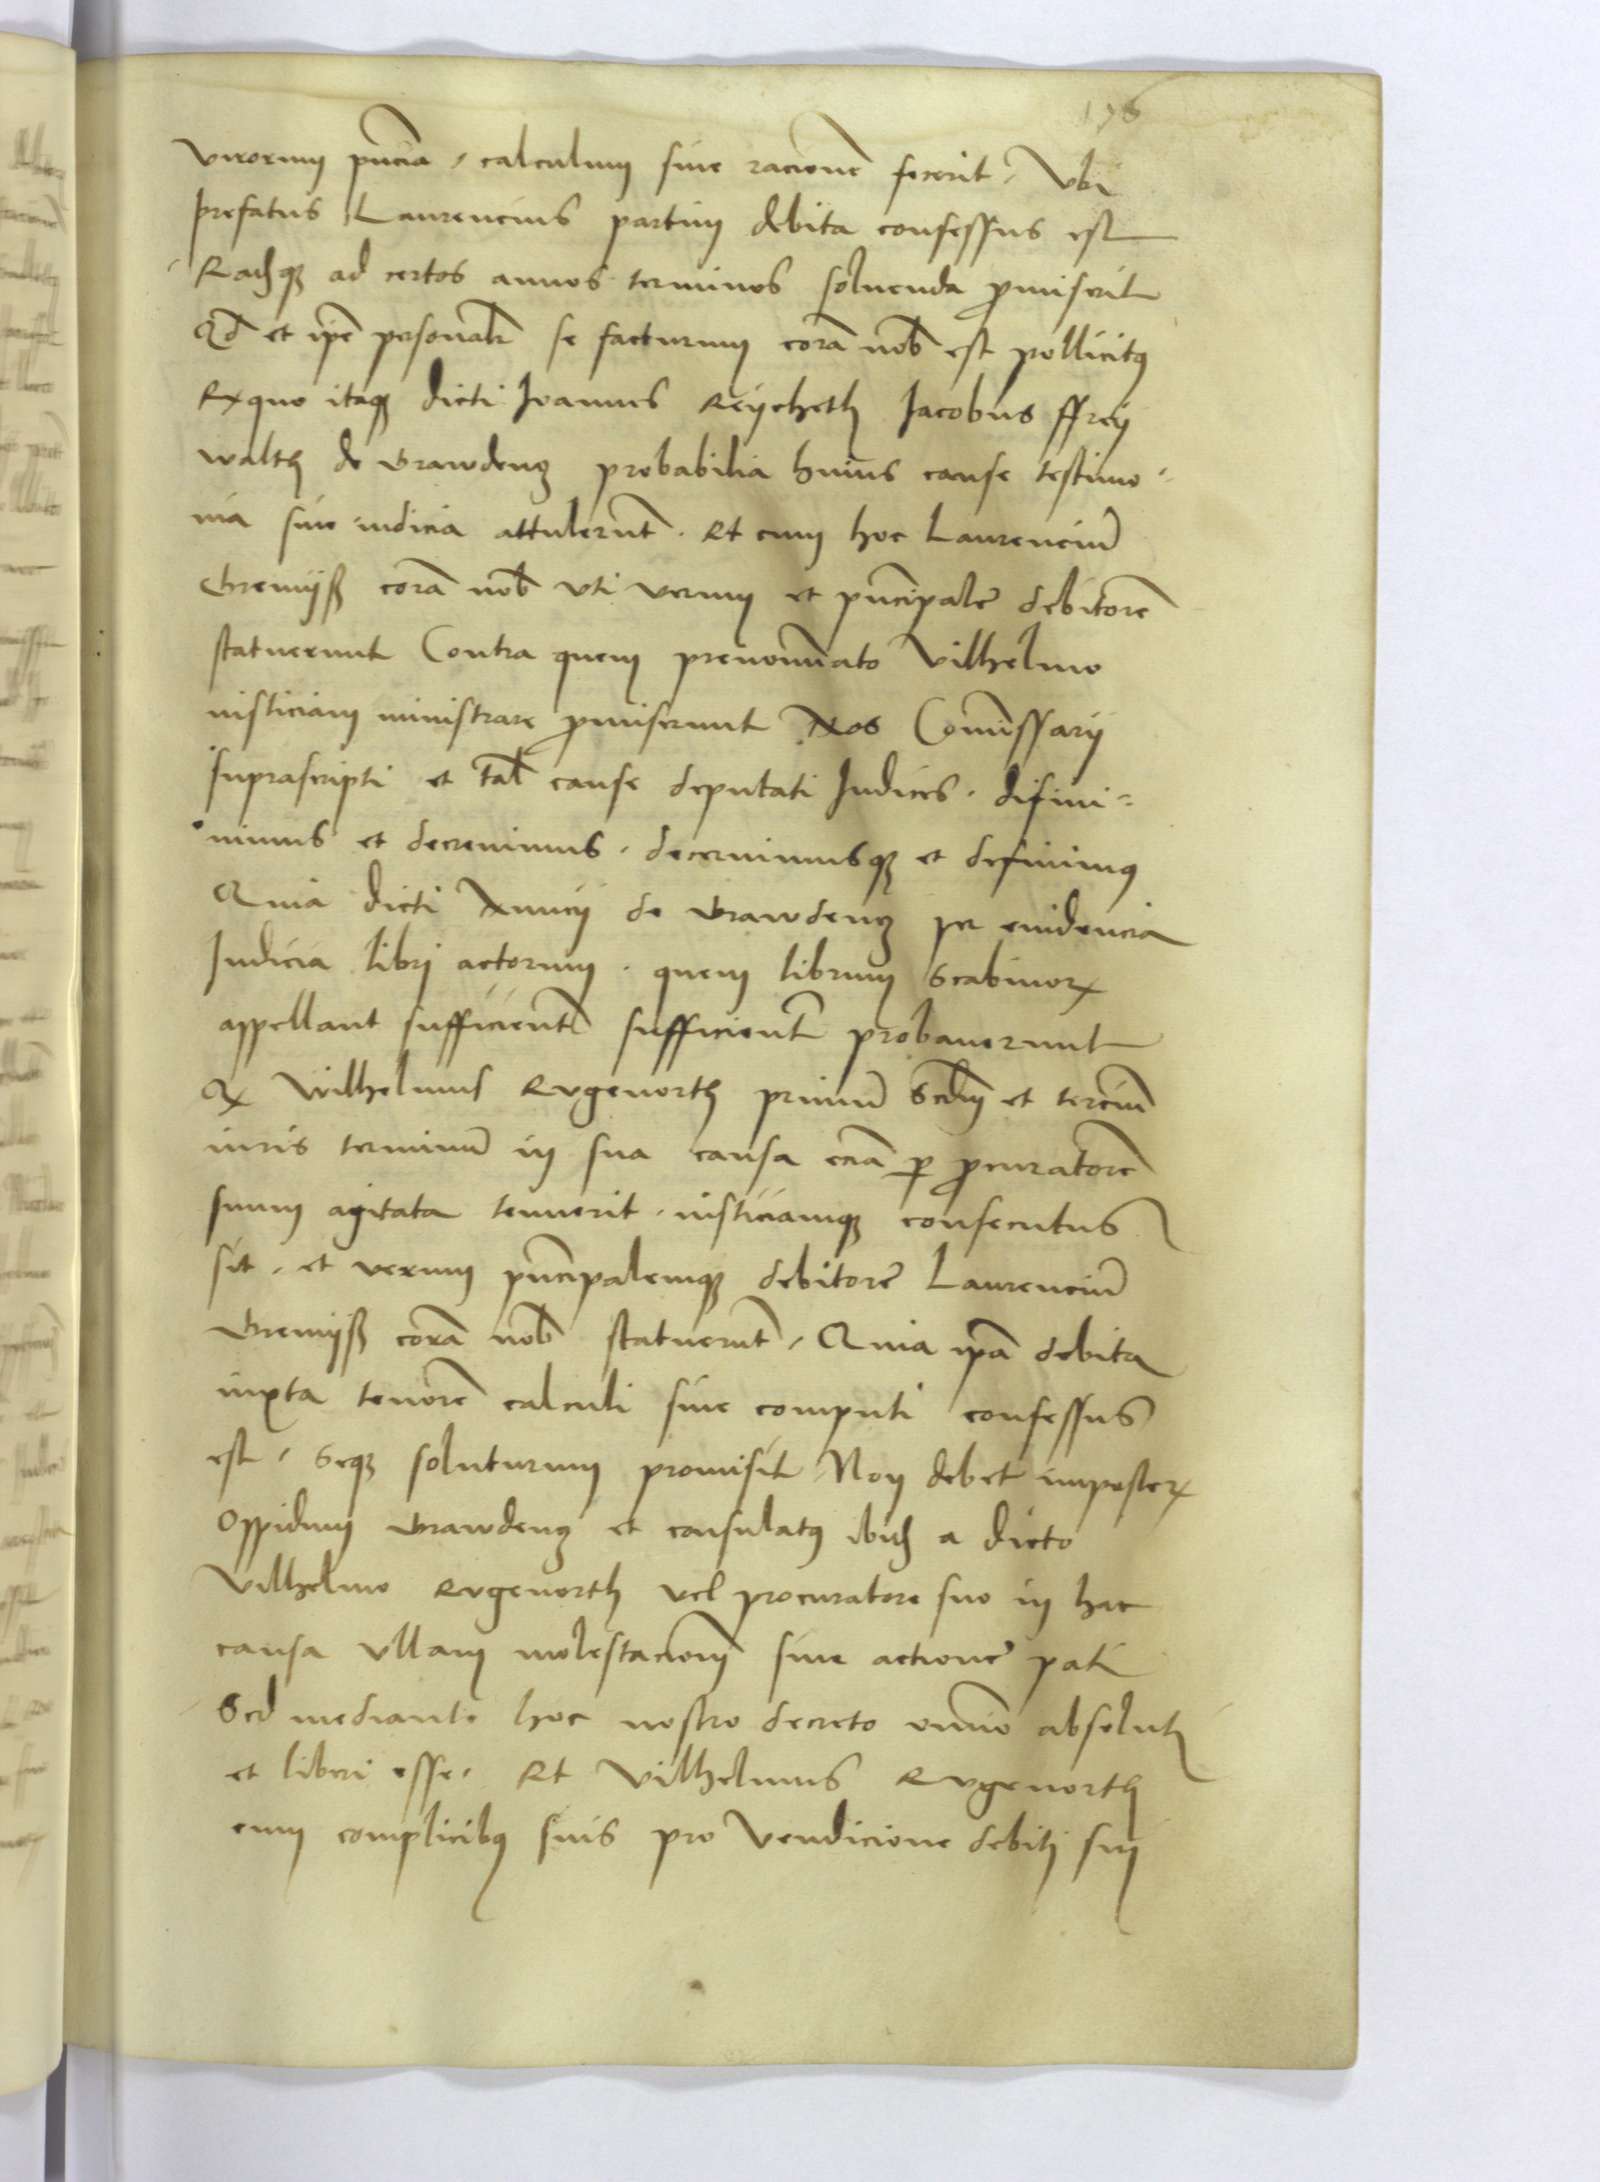 176
virorum pñcia, calculum siue racionē fecerit, Vbi
prefatus Laurencius partim debita confessus est
Eadẽqȝ ad certos annos terminos soluenda ꝓmiserit
Qđ et ip̃e personalr̃ se facturum corā nob̃ est pollicitꝰ
Exquo itaqȝ dicti Ioannes Reycheth Jacobus ffreÿ
walth de Grawdenȝ probabilia huius cause testimo-
nia siue iudicia attulerũt. Et cum hoc Laurenciũ
Gremÿß corā nob̃ vti verum et pñcipalē debitorē
statuerunt Contra quem prenoĩato Vilhelmo
iusticiam ministrare ꝓmiserunt Nos Com̃issarÿ
suprascripti et tal̃ cause deputati Judices. difini-
uimus et decreuimus. decernimusqȝ et definimꝰ
Quia dicti Nuncÿ de Grawdenȝ per euidencia
Judicia libri actorum. quem librum Scabinorꝝ
appellant sufficient̃ sufficient̃ probauerunt
Qꝝ Wilhelmus Rvgenorth primũ Scđm et terciũ
iuris terminũ in sua causa eciā ꝑ ꝓcuratorē
suum agitata tenuerit. iusticiamqȝ consecutus
sit. et verum pñcipalemqȝ debitorē Laurenciũ
Gremÿß corā nob̃ statuerũt. Quia ip̃a debita
iuxta tenorē calculi siue computi confessus
est. Seqȝ soluturum promisit Non debet imposterꝝ
Oppidum Grawdenȝ et consulatꝰ ibidẽ a dicto
Vilhelmo Rvgenorth vel procuratore suo in hac
causa vllam molestacionẽ siue actionē pati
Sed mediante hoc nostro decreto om̃io absoluti
et liberi esse. Et Vilhelmus Rvgenorth
cum complicibꝰ suis pro vendicione debiti sui